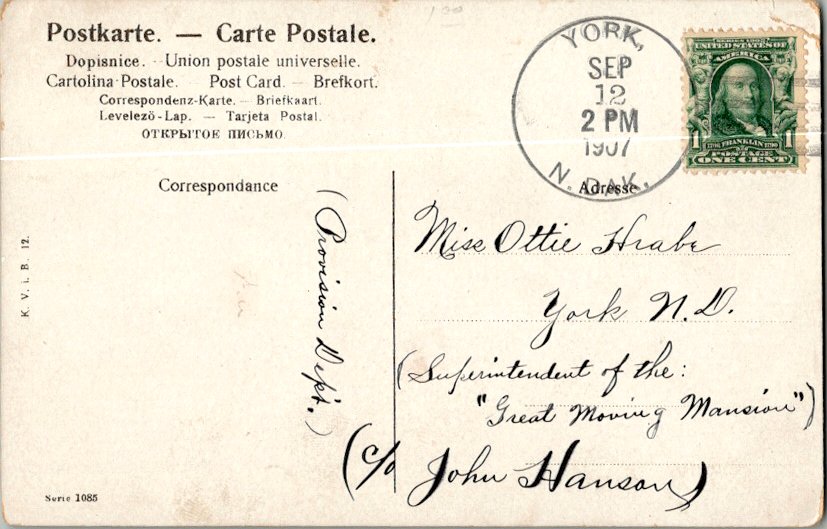 Postkarte. — Carte Postale.
Dopisnice. - Union postale universelle.
Cartolina Postale. — Post Card. — Brefkort.
Correspondenz-Karte. — Briefkaart.
Levelező-Lap. — Tarjeta Postal.
ОТКРЫТОЕ ПИСЬМО.
YORK,
SEP
12
2 PM
1907
N. DAK.
SERIES 1902
UNITED STATES OF
AMERICA
1 1
1706 FRANKLIN 1790
POSTAGE
ONE CENT
Correspondance
Adresse
K. V. i. B. 12.
(Provision Dep't.)
Miss Ottie Hrabe
York N. D.
(Superintendent of the:
"Great Moving Mansion")
(c/o John Hanson)
Serie 1085